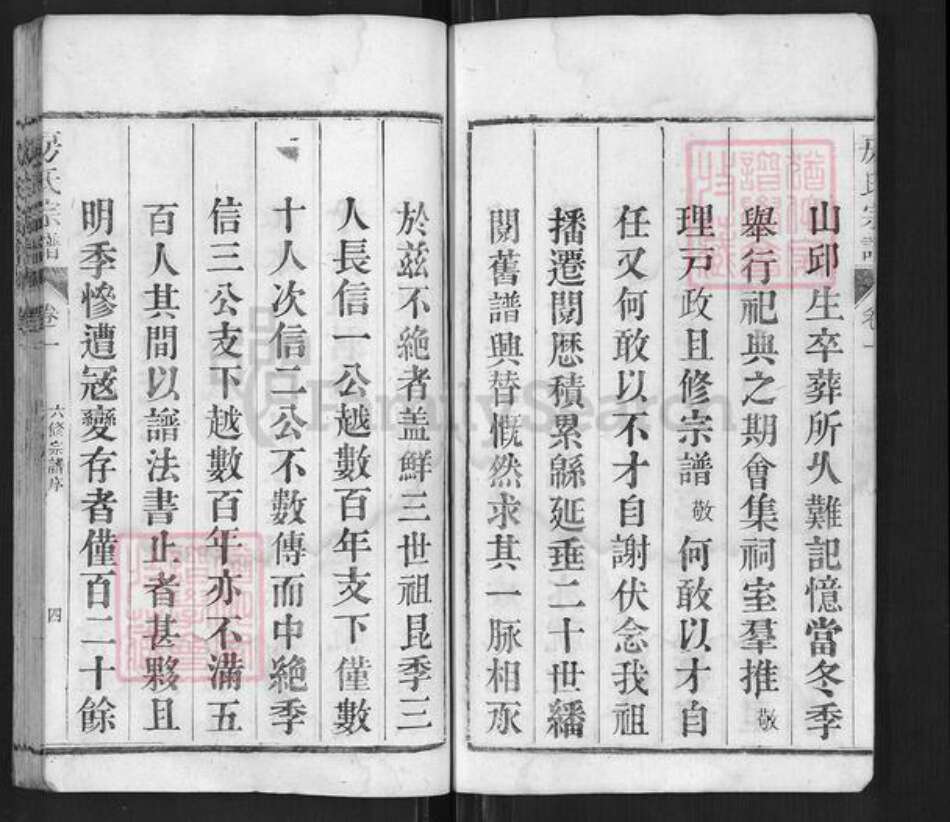 山邱生卒葬所㕥難記憶當冬季
舉行祀典之期會集祠室羣推敬
理戸政且修宗譜敬何敢以才自
任又何敢以不才自謝伏念我祖
播遷閱厯積累緜延垂二十世繙
閱舊譜興替慨然求其一脉相承
於兹不絶者盖鮮三世祖昆季三
人長信一公越數百年支下僅數
十人次信二公不數傳而中絶季
信三公支下越數百年亦不滿五
百人其間以譜法書止者甚夥且
明季慘遭冦變存者僅百二十餘
房氏宗譜
卷一
六修宗譜序
四
FamilySearch